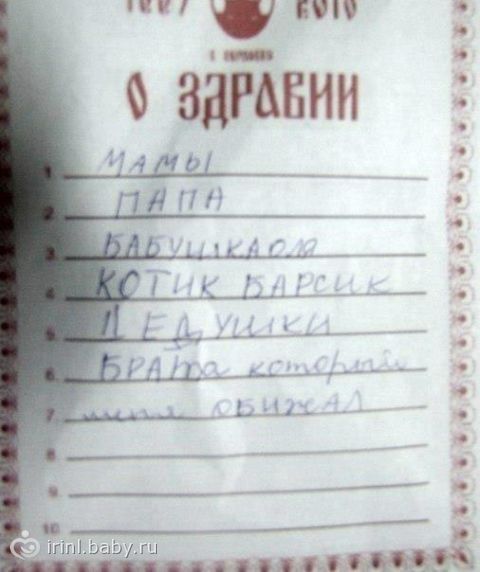 1997 2010
О ЗДРАВИИ
1 МАМЫ
2 ПАПА
3 БАБУШКА ОЛЯ
4 КОТИК БАРСИК
5 ДЕДУШКИ
6 БРАТа который
7 меня ОБИЖАЛ
8
9
10
irinl.baby.ru